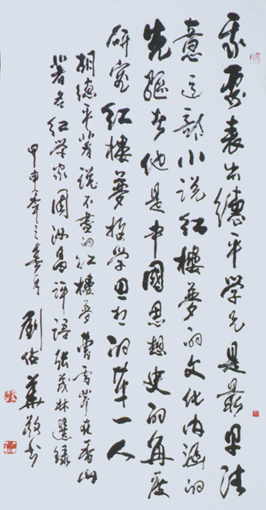 我要表出德平学兄是最早注
意这部小说红楼梦的文化内涵的
先驱者他是中国思想史的角度
研究红楼梦哲学思想的第一人
胡德平著说不尽的红楼梦曹雪芹在香山
著名红学家周汝昌评语张茂林选录
甲申年之春月
劉華敬书